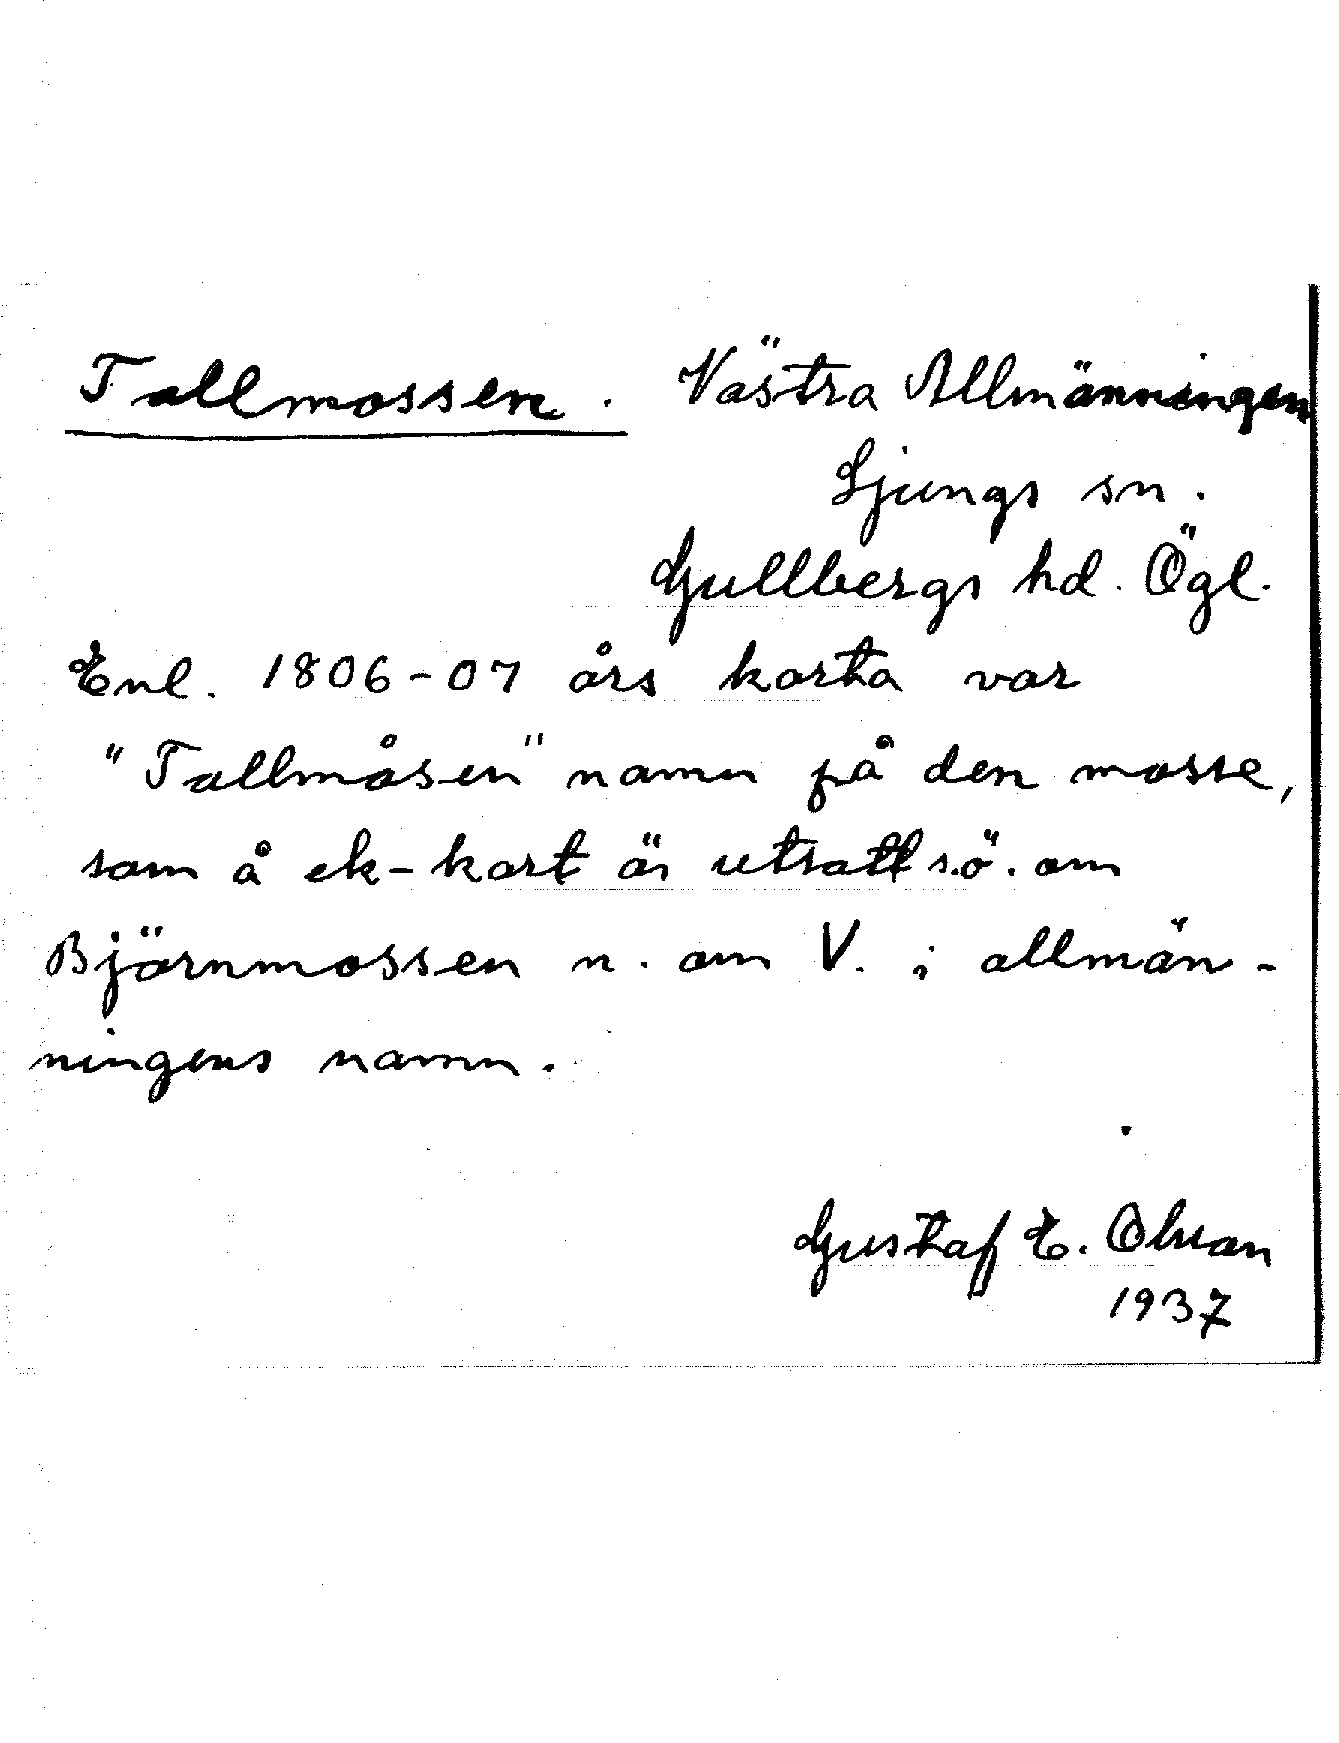 Tallmossen. Västra Allmänningen
Ljungs sn.
Gullbergs hd. Ögl.
Enl. 1806-07 års karta var
"Tallmåsen" namn på den mosse,
som å ek-kart är utsatt s.ö. om
Björnmossen n. om V. i allmän-
ningens namn.
Gustaf E. Olsson
1937